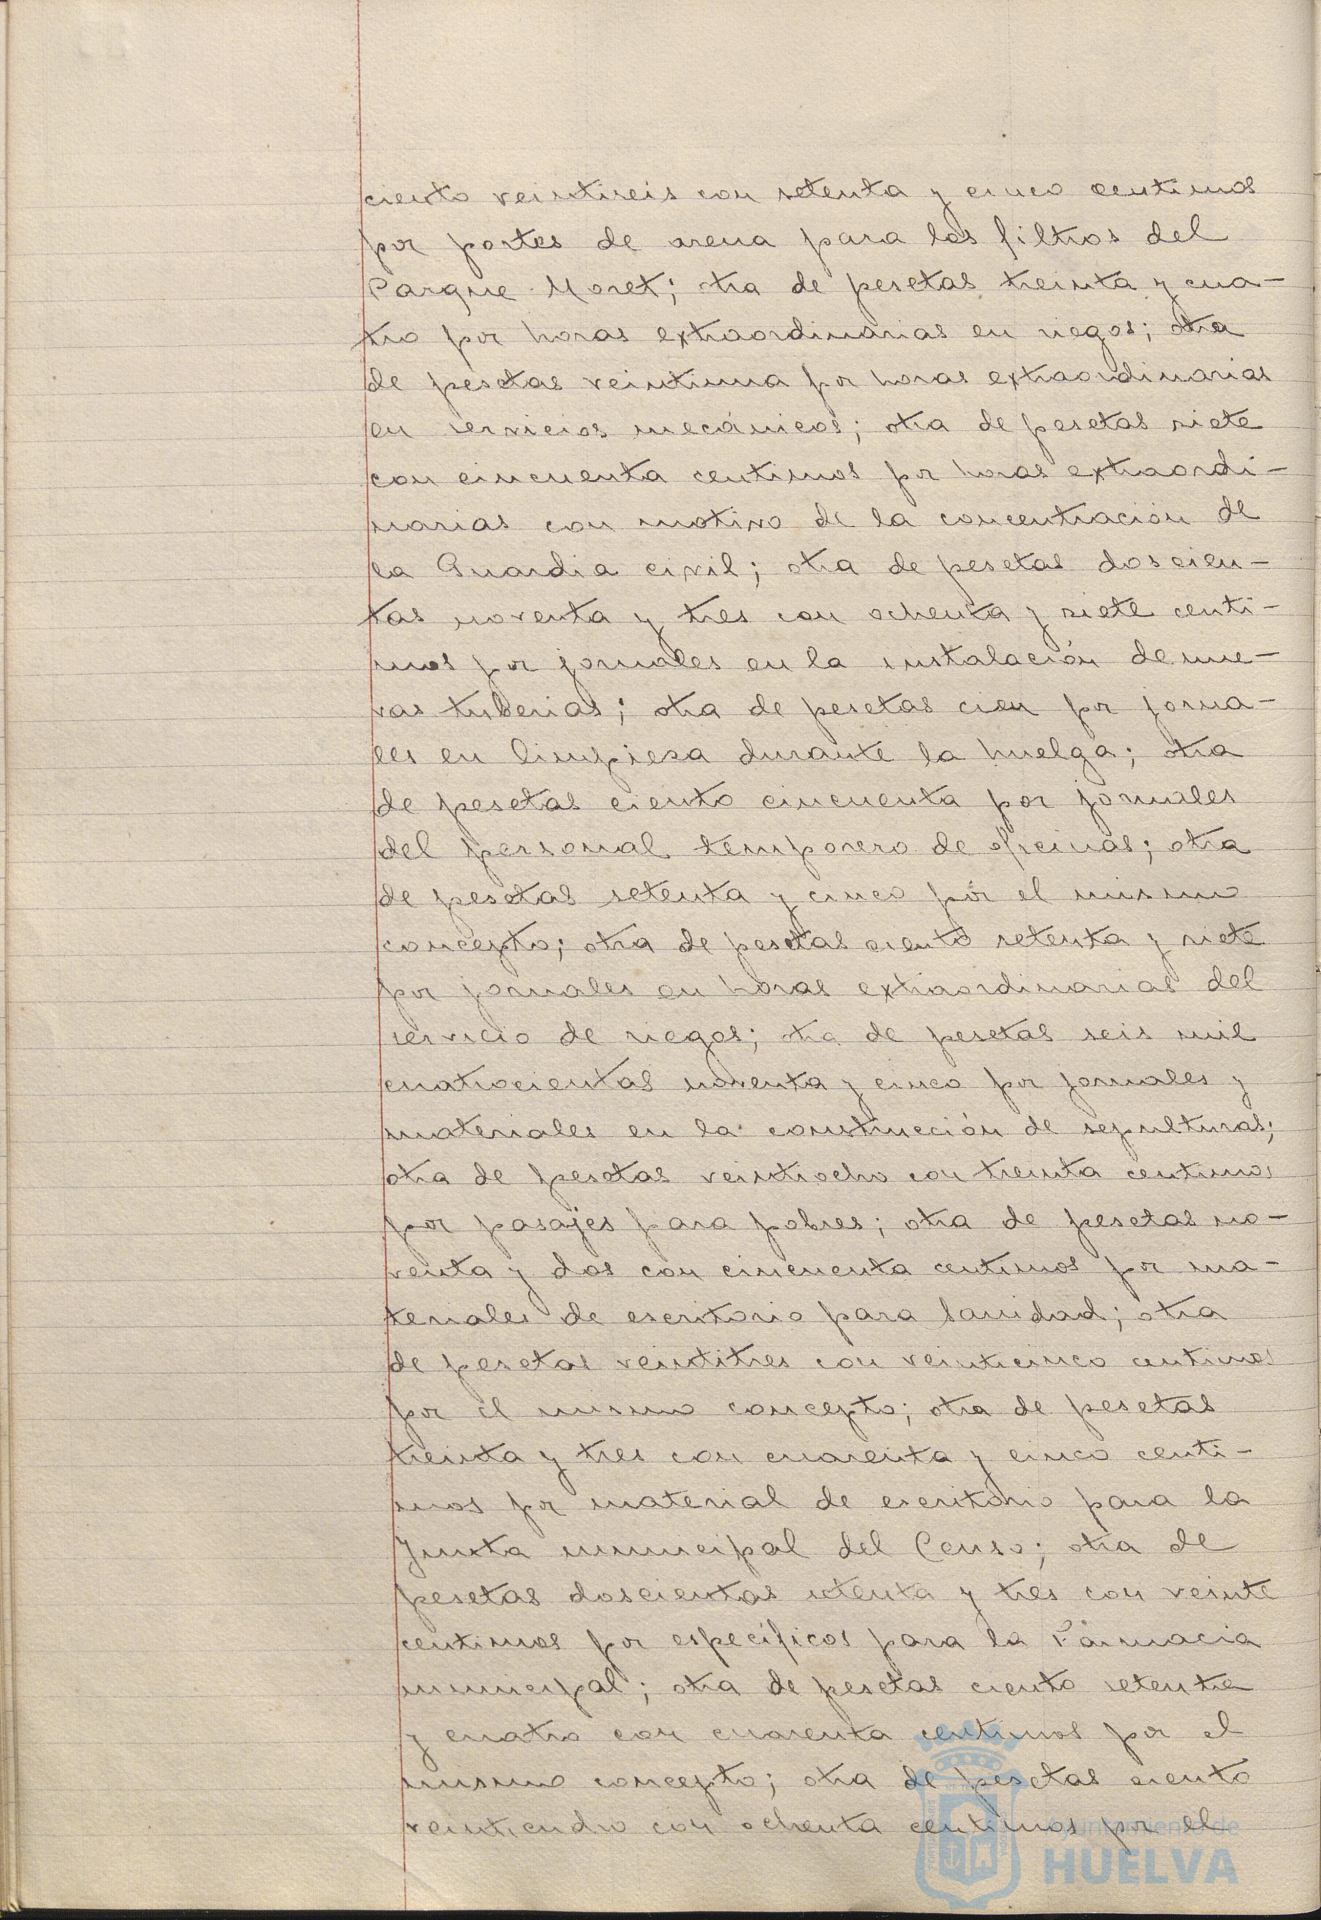 ciento veintiseis con setenta y cinco centimos
por portes de arena para los filtros del
Parque Moret; otra de pesetas treinta y cua-
tro por horas extraordinarias en riegos; otra
de pesetas veintiuna por horas extraordinarias
en servicios mecánicos; otra de pesetas siete
con cincuenta centimos por horas extraordi-
narias con motivo de la concentración de
la Guardia civil; otra de pesetas doscien-
tas noventa y tres con ochenta y siete centi-
mos por jornales en la instalación de nue-
vas tuberias; otra de pesetas cien por jorna-
les en limpiesa durante la huelga; otra
de pesetas ciento cincuenta por jornales
del personal temporero de oficinas; otra
de pesetas setenta y cinco por el mismo
concepto; otra de pesetas ciento setenta y siete
por jornales en horas extraordinarias del
servicio de riegos; otra de pesetas seis mil
cuatrocientas noventa y cinco por jornales y
materiales en la construcción de sepulturas;
otra de pesetas veintiocho con treinta centimos
por pasajes para pobres; otra de pesetas no-
venta y dos con cincuenta centimos por ma-
teriales de escritorio para Sanidad; otra
de pesetas veintitres con veinticinco centimos
por el mismo concepto; otra de pesetas
treinta y tres con cuarenta y cinco centi-
mos por material de escritorio para la
Junta municipal del Censo; otra de
pesetas doscientas setenta y tres con veinte
centimos por específicos para la Fármacia
municipal; otra de pesetas ciento setenta
y cuatro con cuarenta centimos por el
mismo concepto; otra de pesetas ciento
veinticuatro con ochenta centimos por el
Ayuntamiento de
HUELVA